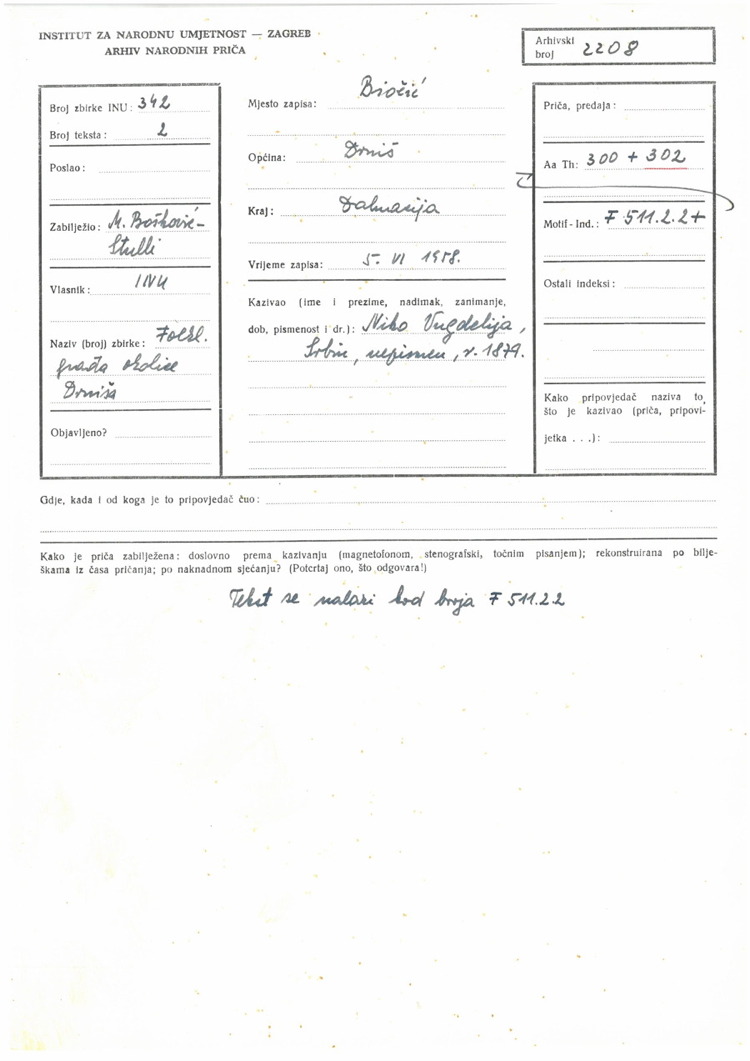 INSTITUT ZA NARODNU UMJETNOST — ZAGREB
ARHIV NARODNIH PRIČA
Arhivski
broj 2208
Broj zbirke INU: 342
Broj teksta: 2
Poslao:
Zabilježio: M. Bošković-
Stulli
Vlasnik: INU
Naziv (broj) zbirke: Folkl.
građa okolice
Drniša
Objavljeno?
Mjesto zapisa: Biočić
Općina: Drniš
Kraj: Dalmacija
Vrijeme zapisa: 5. VI 1958.
Kazivao (ime i prezime, nadimak, zanimanje,
dob, pismenost i dr.): Niko Vugdelija,
Srbin, nepismen, r. 1879.
Priča, predaja:
Aa Th: 300 + 302
Motif-Ind.: F 511.2.2+
Ostali indeksi:
Kako pripovjedač naziva to,
što je kazivao (priča, pripovi-
jetka . . .):
Gdje, kada i od koga je to pripovjedač čuo:
Kako je priča zabilježena: doslovno prema kazivanju (magnetofonom, stenografski, točnim pisanjem); rekonstruirana po bilje-
škama iz časa pričanja; po naknadnom sjećanju? (Potcrtaj ono, što odgovara!)
Tekst se nalazi kod broja F 511.2.2